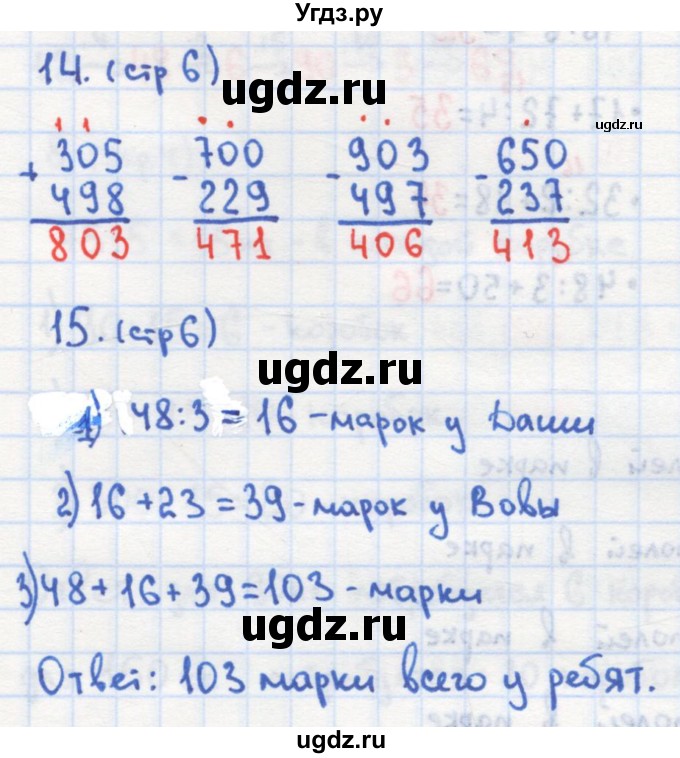 Угдз.ру
14. (стр 6)
ugdz.ru
ugdz.ru
+ 305 - 700 - 903 - 650
498 229 497 237
803 471 406 413
15. (стр 6)
ugdz.ru
1) 48:3 = 16 - марок у Даши
2) 16 + 23 = 39 - марок у Вовы
ugdz.ru
3) 48 + 16 + 39 = 103 - марки
ugdz.ru
Ответ: 103 марки всего у ребят.
ugdz.ru